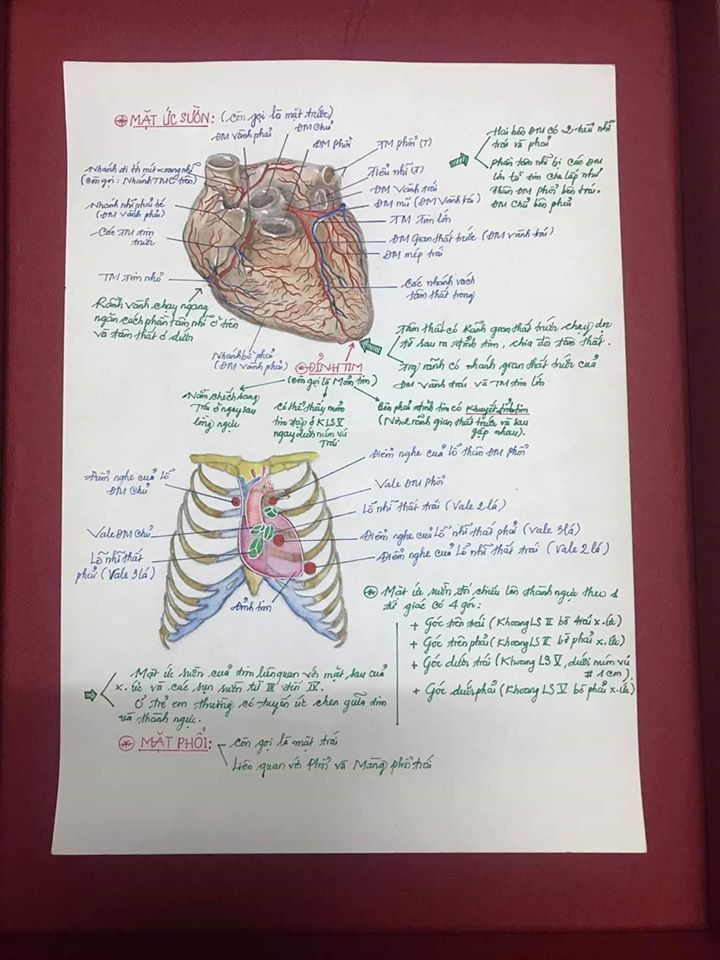 ⊛ MẶT ỨC SƯỜN: (còn gọi là mặt trước)
ĐM vành phải
ĐM chủ
ĐM phổi
TM phổi (T)
Tiểu nhĩ (T)
ĐM vành trái
ĐM mũ (ĐM vành trái)
TM tim lớn
ĐM gian thất trước (ĐM vành trái)
ĐM mép trái
Các nhánh vách
tâm thất trong
Nhánh đi tới nút xoang nhĩ
(còn gọi: Nhánh TMC trên)
Nhánh nhĩ phải bé
(ĐM vành phải)
Các TM tim
trước
TM tim nhỏ
Nhánh bờ phải
(ĐM vành phải)
Hai bên ĐM có 2 tiểu nhĩ
trái và phải
phần tâm nhĩ bị các ĐM
lớn từ tim che lấp như
Thân ĐM phổi bên trái.
ĐM chủ bên phải
Rãnh vành chạy ngang
ngăn cách phần tâm nhĩ ở trên
và tâm thất ở dưới
Tâm thất có Rãnh gian thất trước chạy dọc
từ sau ra đỉnh tim, chia đôi tâm thất.
Tại rãnh có nhánh gian thất trước của
ĐM vành trái và TM tim lớn
⊛ ĐỈNH TIM
(còn gọi là Mỏm tim)
Nằm chếch sang
Trái ở ngay sau
lồng ngực
có thể thấy mỏm
tim đập ở KLS V
ngay dưới núm vú
Trái
Bên phải đỉnh tim có Khuyết đỉnh tim
(Nơi 2 rãnh gian thất trước và sau
gặp nhau).
Điểm nghe của lỗ
ĐM chủ
Vale ĐM chủ
Lỗ nhĩ thất
phải (Vale 3 lá)
Đỉnh tim
Điểm nghe của lỗ thân ĐM phổi
Vale ĐM phổi
Lỗ nhĩ thất trái (Vale 2 lá)
Điểm nghe của lỗ nhĩ thất phải (Vale 3 lá)
Điểm nghe của lỗ nhĩ thất trái (Vale 2 lá)
⊛ Mặt ức sườn đối chiếu lên thành ngực theo 1
tứ giác có 4 góc:
+ Góc trên trái (Khoang LS II bờ trái x. ức)
+ Góc trên phải (Khoang LS II bờ phải x. ức)
+ Góc dưới trái (Khoang LS V, dưới núm vú
# 1cm).
+ Góc dưới phải (Khoang LS V bờ phải x. ức)
Mặt ức sườn của tim liên quan với mặt sau của
x. ức và các sụn sườn từ III đến IV.
Ở trẻ em thường có tuyến ức chen giữa tim
và thành ngực.
⊛ MẶT PHỔI:
còn gọi là mặt trái
Liên quan với Phổi và Màng phổi trái